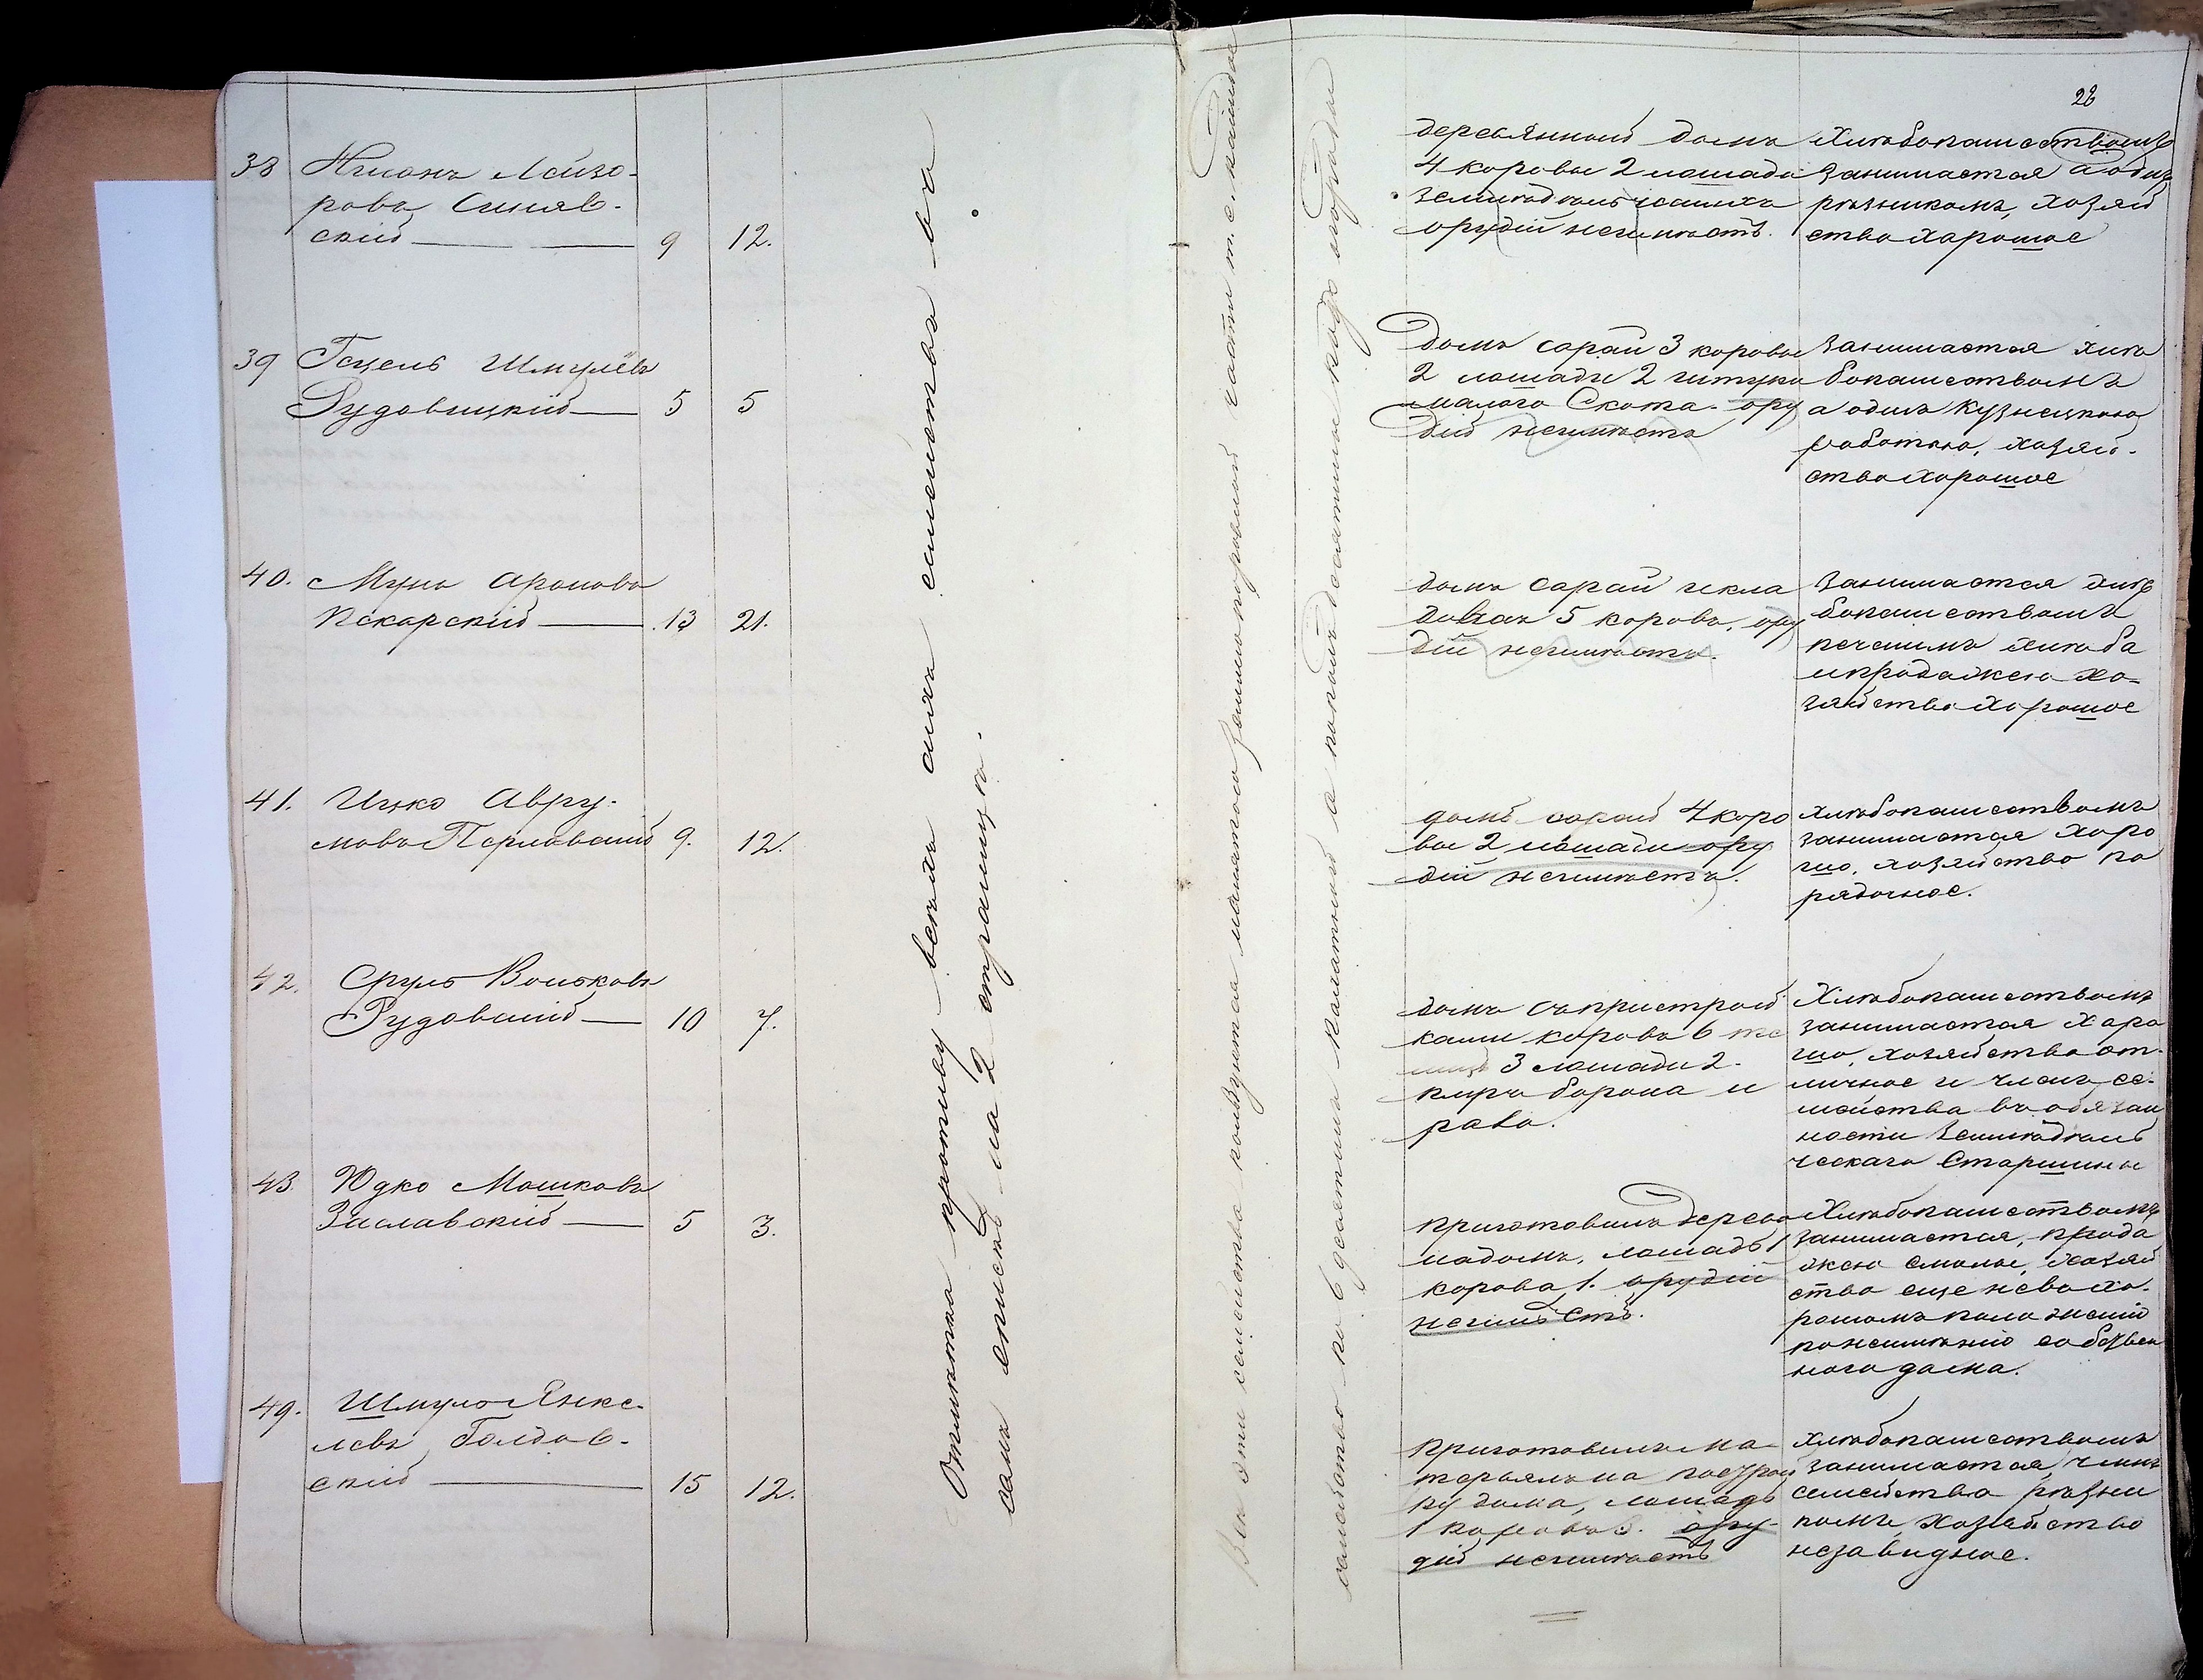 28
38 Нисонъ Лейзо-
ровъ Синяв-
скій 9 12.
деревянный домъ
4 коровы 2 лошади
земледѣльческихъ
орудій неимѣетъ.
Хлѣбопашествомъ
занимается а одинъ
рѣзникомъ, хозяй
ство харошое
39 Гецель Шмулёвъ
Рудовицкій 5 5
Домъ сарай 3 коровы
2 лошади 2 штуки
малого Скота. ору
дій неимѣетъ
Занимается хлѣ
бопашествомъ
а одинъ Кузнецкою
работою, хозяй-
ство хорошое
40. Муна Ароновъ
Пекарскій 13 21.
домъ сарай
5 коровъ, ору
дій неимѣетъ.
Занимается хлѣ
бопашествомъ
печеніемъ хлѣба
ипродажею хо-
зяйство хорошое
41. Ицко Авру-
мовъ 9. 12.
домъ сарай 4 коро
вы 2 лошади ору
дій неимѣетъ.
хлѣбопашествомъ
занимается харо
шо, хозяйство по
рядочное.
42. Сруль Вольковъ
10 7.
домъ съпристрой
ками коровъ 6 те
лицъ 3 лошади 2.
плугъ борона и
рало.
Хлѣбопашествомъ
занимается харо
шо, хозяйство от-
личное и членъ се-
мейства въ обязан
ности Земледѣль
ческаго Старшины
43. Юдко Мошковъ
Заславскій 5 3.
приготовилъ дерево
надомъ, лошадь 1
корова 1. орудій
неимѣетъ.
Хлѣбопашествомъ
занимается, прода
жею смолы, хозяй
ство еще невъ хо-
рошомъ положеніи
понеимѣнію собствен
ного дома.
49. Шмуло Янке-
левъ Голдов-
скій 15 12.
приготовилъ ма-
терьялъ на построй
ку дома, лошадь
1 коровъ 3. ору-
дій неимѣетъ
хлѣбопашествомъ
занимается, членъ
семейства рѣзни
комъ, хозяйство
незавидное.
Отмѣтка противу всѣхъ сихъ семействъ на
самъ списекъ на 2 страницѣ.
Всѣ эти семейства пользуются